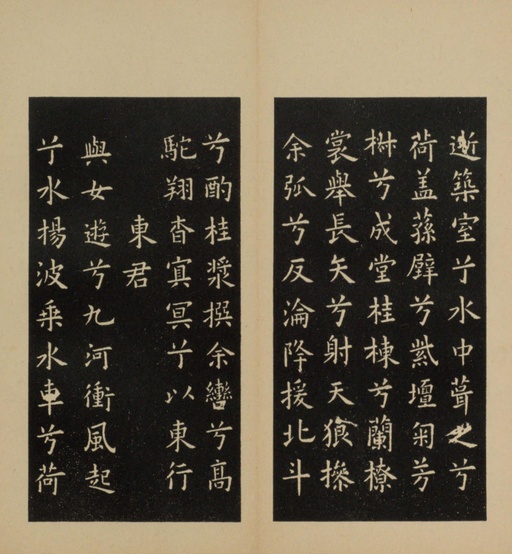 逝築室兮水中葺之兮
荷盖蓀壁兮紫壇匊芳
椒兮成堂桂棟兮蘭橑
裳舉長矢兮射天狼操
余弧兮反淪降援北斗
兮酌桂漿撰余轡兮高
駝翔杳冥冥兮以東行
東君
與女遊兮九河衝風起
兮水揚波乗水車兮荷